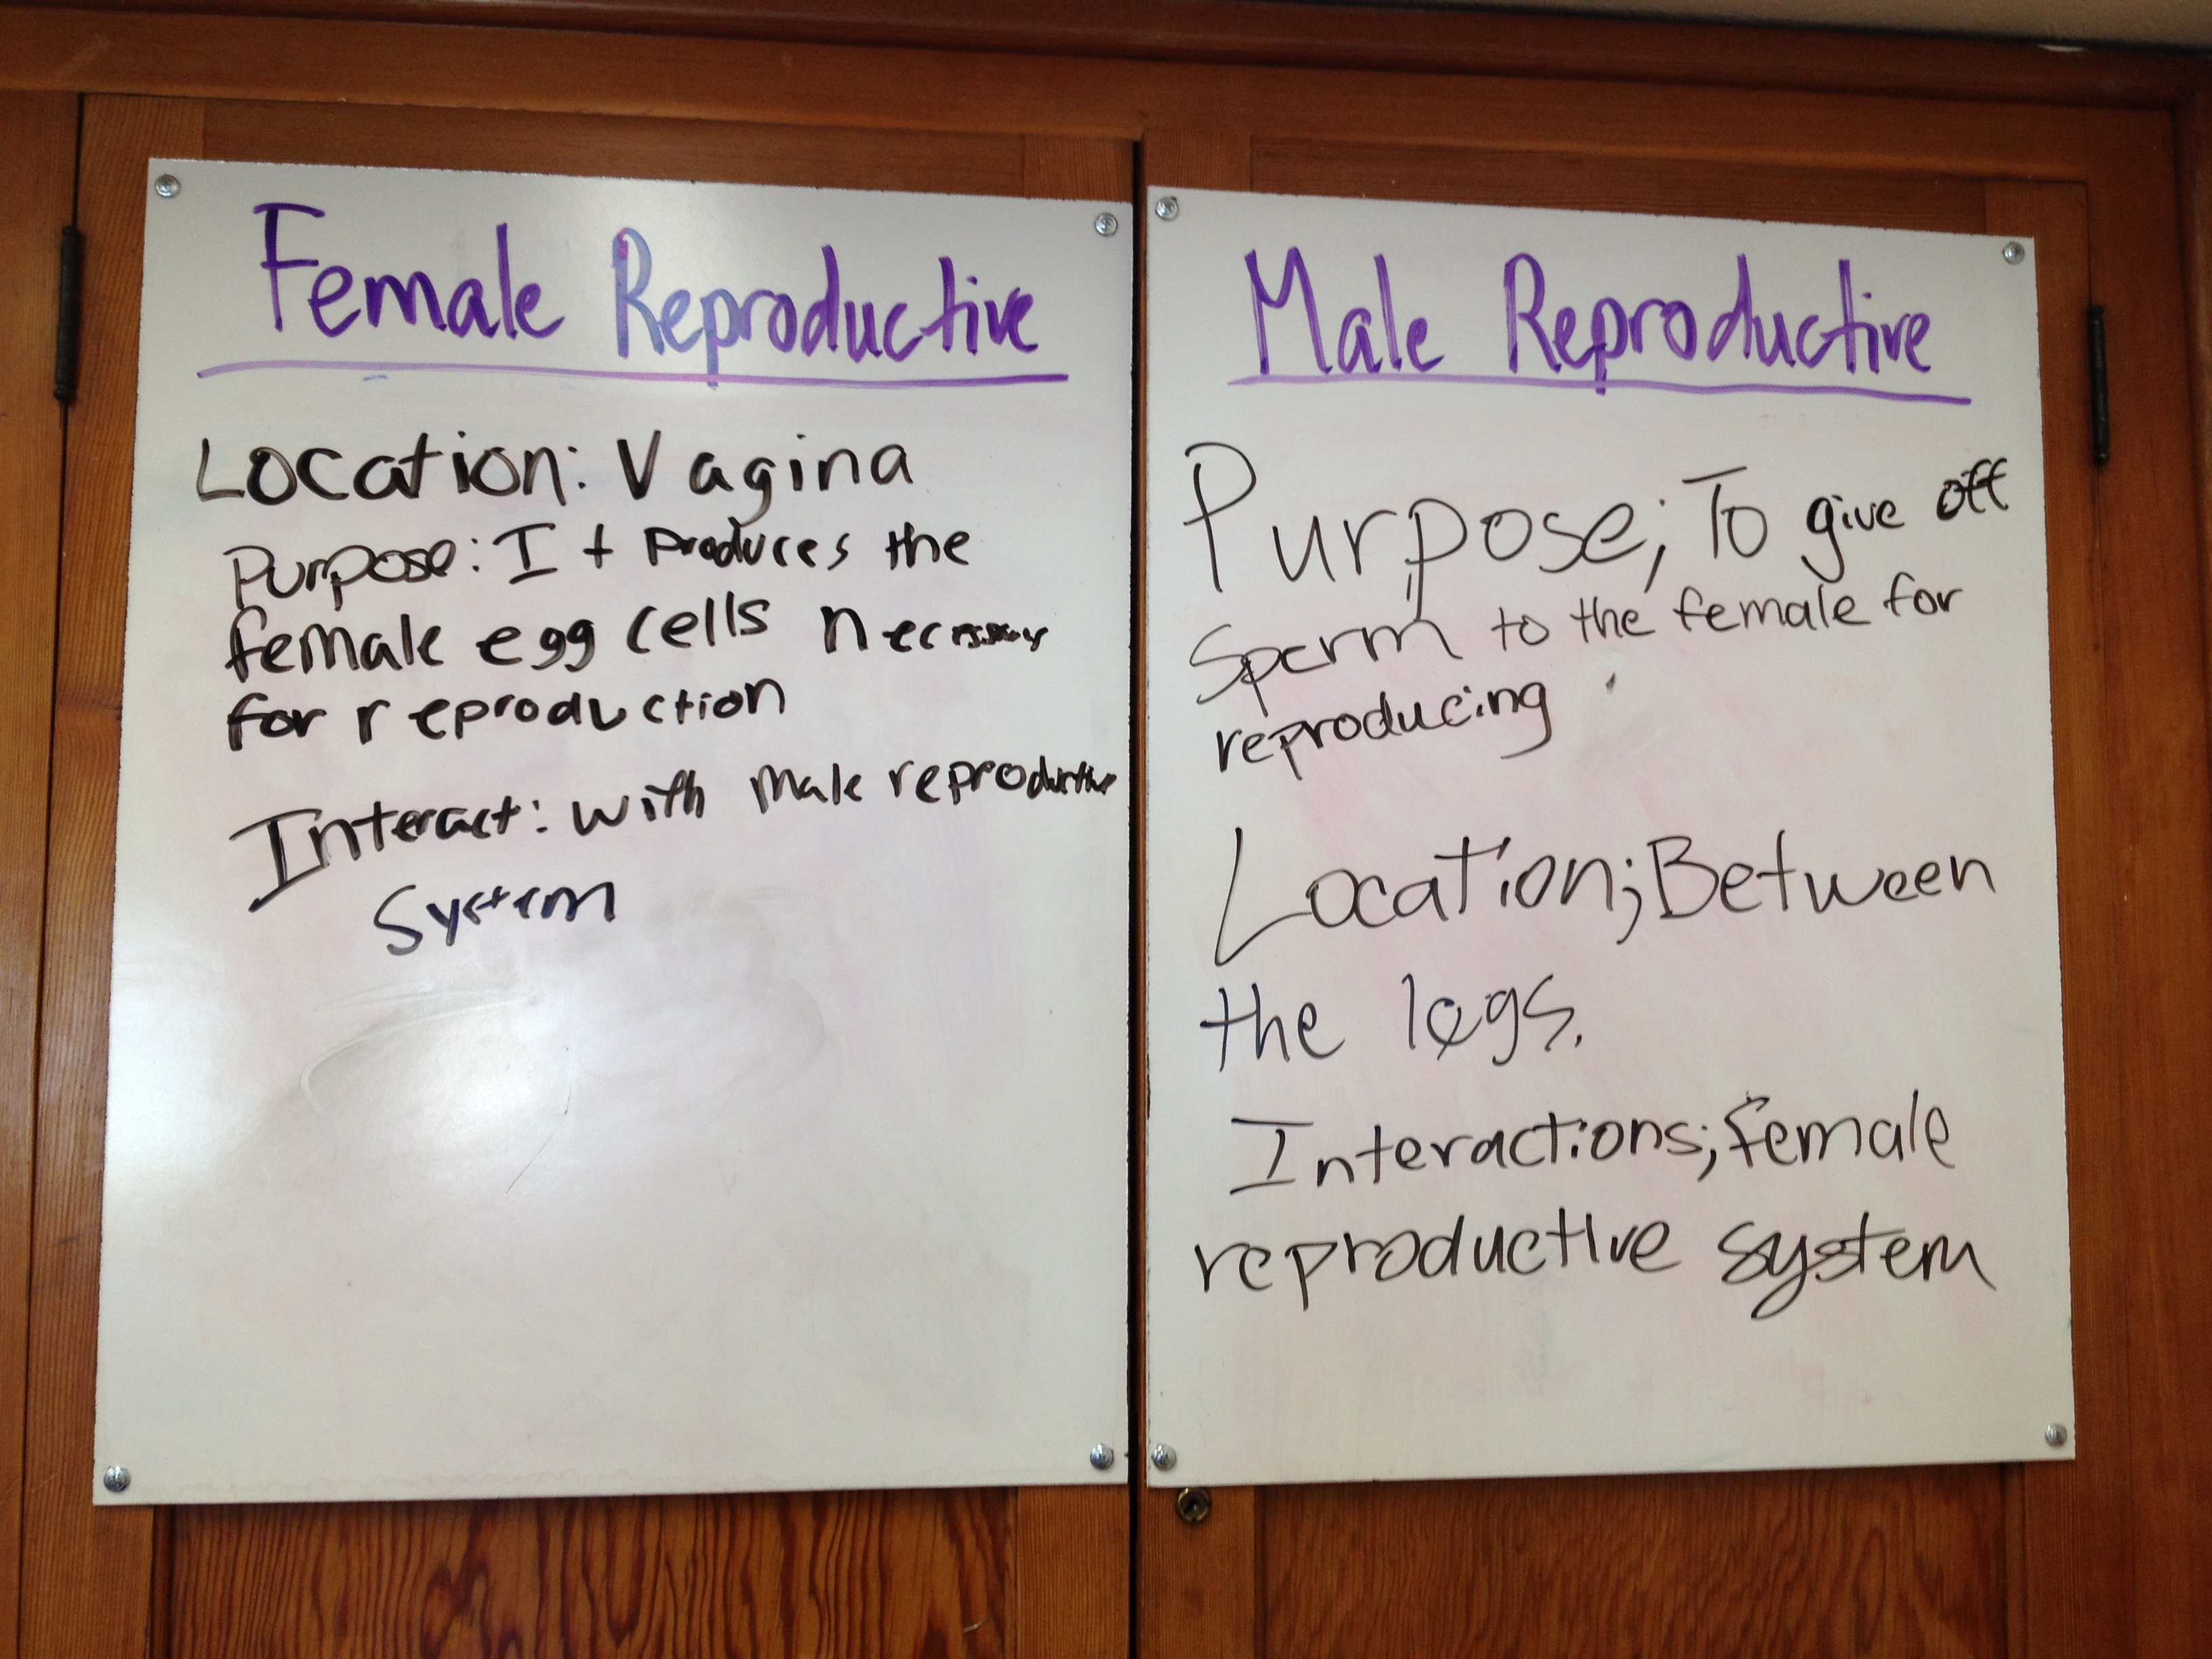 Female Reproductive
Location: Vagina
Purpose: It produces the
female egg cells necessary
for reproduction
Interact: with male reproductive
System
Male Reproductive
Purpose; To give off
Sperm to the female for
reproducing
Location; Between
the legs.
Interactions; female
reproductive system